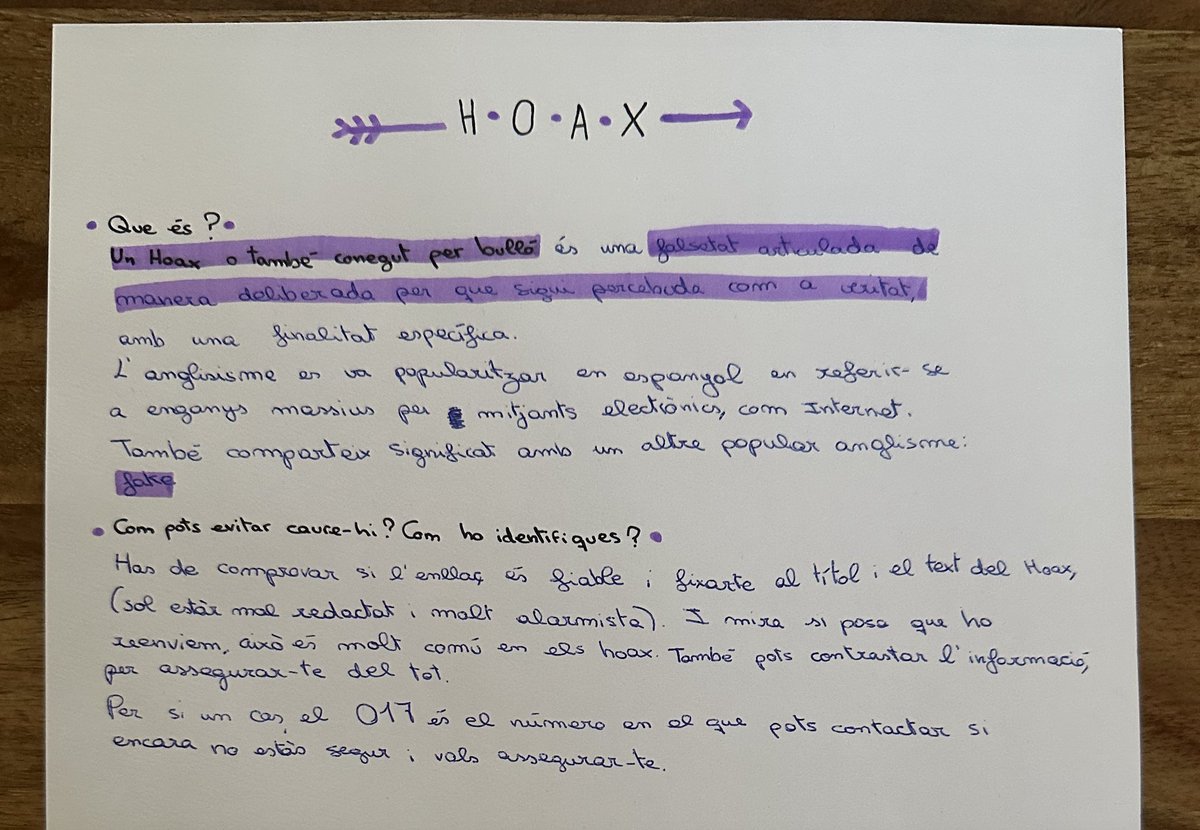 H·O·A·X
• Que és? •
Un Hoax o també conegut per bulló és una falsetat articulada de
manera deliberada per que sigui percebuda com a veritat,
amb una finalitat específica.
L'anglisisme es va popularitzar en espanyol en referir-se
a enganys massius per mitjants electrònics, com Internet.
També comparteix significat amb un altre popular anglisme:
fake
• Com pots evitar caure-hi? Com ho identifiques? •
Has de comprovar si l'enllaç és fiable i fixarte al títol i el text del Hoax,
(sol estàr mal redactat i molt alarmista). I mira si posa que ho
reenviem, això és molt comú en els hoax. També pots contrastar l'informació,
per assegurar-te del tot.
Per si un cas, el 017 és el número en el que pots contactar si
encara no estàs segur i vols assegurar-te.